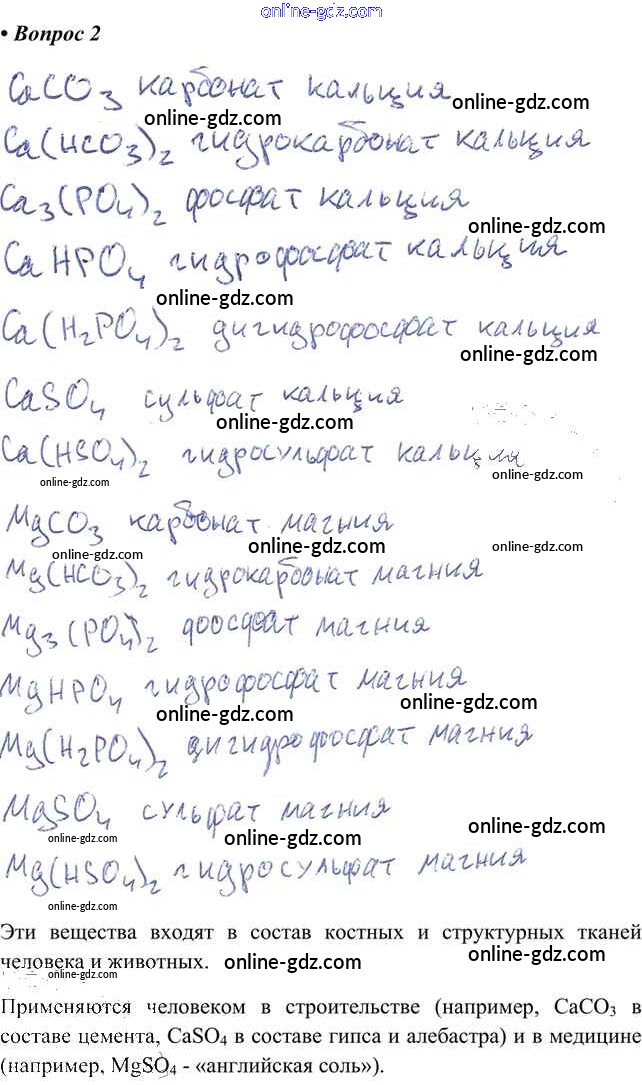 online-gdz.com
• Вопрос 2
CaCO3 карбонат кальция
online-gdz.com online-gdz.com
Ca(HCO3)2 гидрокарбонат кальция
Ca3(PO4)2 фосфат кальция
online-gdz.com
CaHPO4 гидрофосфат кальция
online-gdz.com
Ca(H2PO4)2 дигидрофосфат кальция
online-gdz.com
CaSO4 сульфат кальция
online-gdz.com
Ca(HSO4)2 гидросульфат кальция
online-gdz.com online-gdz.com
MgCO3 карбонат магния
online-gdz.com online-gdz.com online-gdz.com
Mg(HCO3)2 гидрокарбонат магния
Mg3(PO4)2 фосфат магния
online-gdz.com online-gdz.com
MgHPO4 гидрофосфат магния
online-gdz.com online-gdz.com
Mg(H2PO4)2 дигидрофосфат магния
MgSO4 сульфат магния
online-gdz.com online-gdz.com online-gdz.com
Mg(HSO4)2 гидросульфат магния
online-gdz.com
Эти вещества входят в состав костных и структурных тканей
человека и животных.
online-gdz.com online-gdz.com
online-gdz.com
Применяются человеком в строительстве (например, CaCO3 в
составе цемента, CaSO4 в составе гипса и алебастра) и в медицине
(например, MgSO4 - «английская соль»).